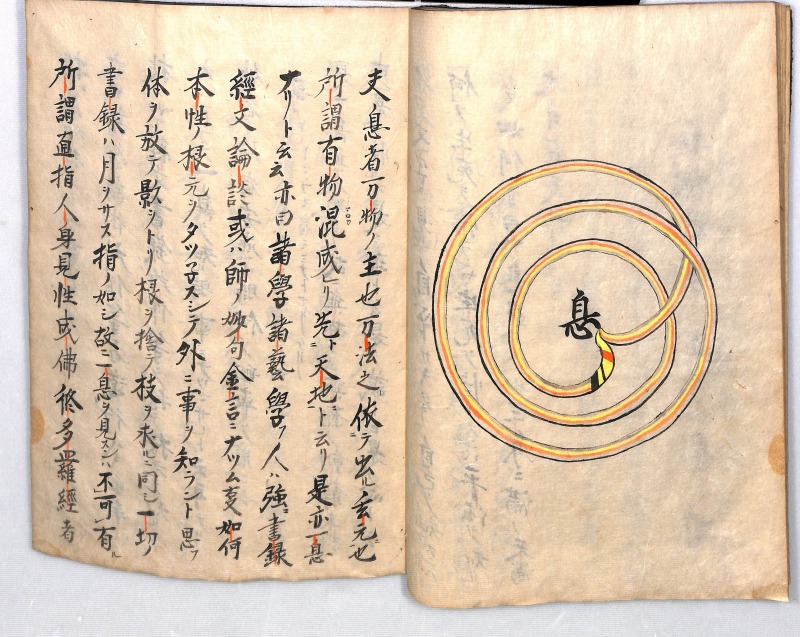 息
夫息者万物ノ主也万法之依テ出ル玄元也
所謂有物混成シリ先ト天地ニト云リ是亦一息
ナリト云云亦曰諸學諸藝學フ人ハ強ニ書録
經文論談或ハ師ノ妙句金言ニナツム事如何
本性ノ根元ヲタツ子スシテ外ニ事ヲ知ラント思フ
体ヲ放テ影ヲトリ根ヲ捨テ枝ヲ求ルニ同シ一切ノ
書録ハ月ヲサス指ノ如シ故ニ一息ヲ見スンハ不可有ル
所謂直指人身見性成佛修多羅經者